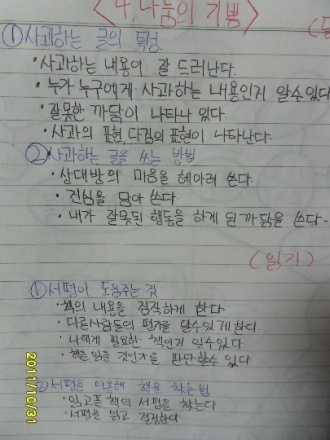 <4. 나눔의 기쁨>
① 사과하는 글의 특성
· 사과하는 내용이 잘 드러난다.
· 누가 누구에게 사과하는 내용인지 알수있다
· 잘못한 까닭이 나타나 있다.
· 사과의 표현, 다짐의 표현이 나타난다.
② 사과하는 글을 쓰는 방법
· 상대방의 마음을 헤아려 쓴다.
· 진심을 담아 쓴다.
· 내가 잘못된 행동을 하게 된 까닭을 쓴다.
(읽기)
① 서평이 도움주는 점
· 책의 내용을 짐작하게 한다.
· 다른사람들의 평가를 알수있게한다.
· 나에게 필요한 책인지 알수있다.
· 책을 읽을 것인가를 판단할수 있다
② 서평을 이용해 책을 찾는법
· 읽고픈 책의 서평을 찾는다
· 서평을 읽고 결정한다
2011/10/31